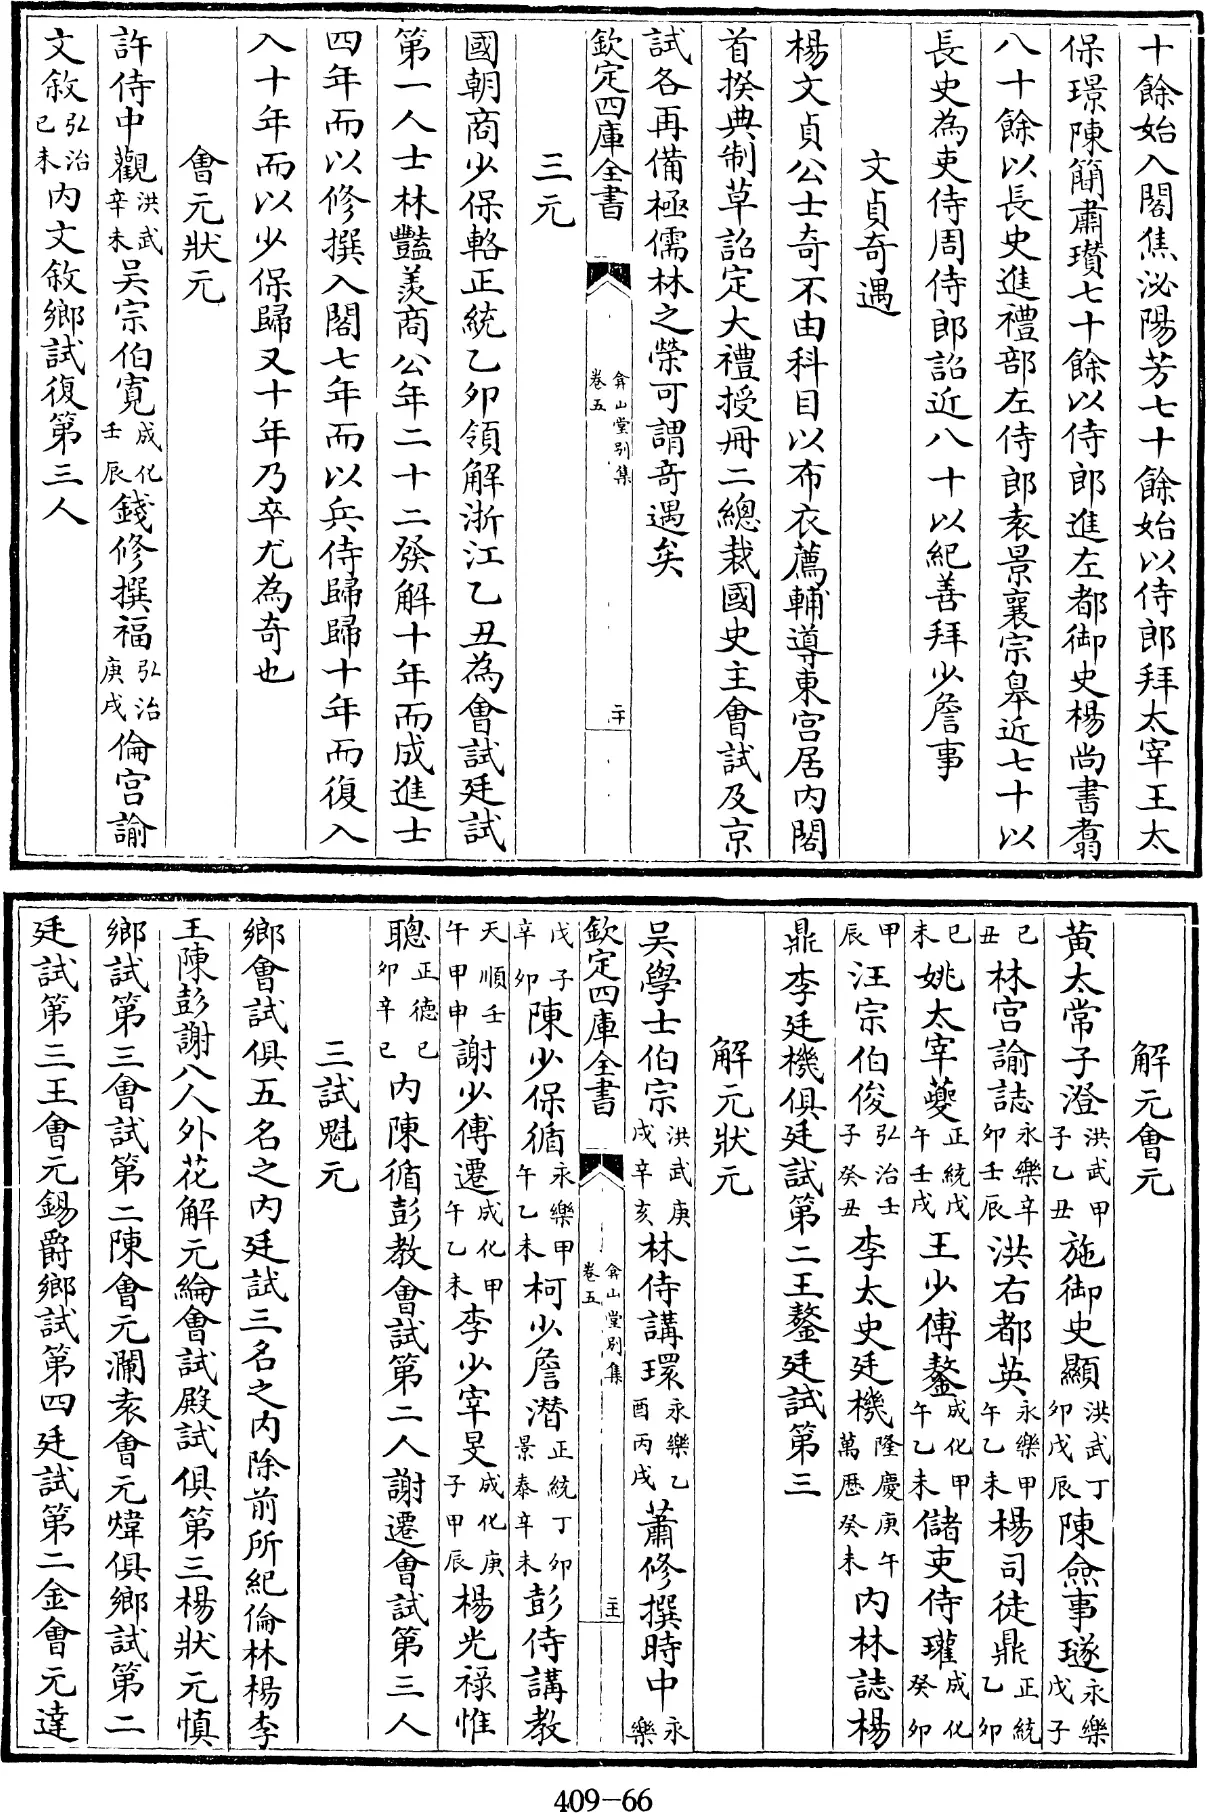 十餘始入閣焦泌陽芳七十餘始以侍郎拜太宰王太
保璟陳簡肅瓚七十餘以侍郎進左都御史楊尚書翥
八十餘以長史進禮部左侍郎袁景襄宗臯近七十以
長史為吏侍周侍郎詔近八十以紀善拜少詹事
文貞奇遇
楊文貞公士奇不由科目以布衣薦輔導東宮居内閣
首揆典制草詔定大禮授冊二總裁國史主會試及京
試各再備極儒林之榮可謂奇遇矣
欽定四庫全書 弇山堂别集 卷五 二十
三元
國朝商少保輅正統乙卯領解浙江乙丑為會試廷試
第一人士林豔羨商公年二十二發解十年而成進士
四年而以修撰入閣七年而以兵侍歸歸十年而復入
入十年而以少保歸又十年乃卒尤為奇也
會元狀元
許侍中觀洪武辛未吳宗伯寛成化壬辰錢修撰福弘治庚戌倫宫諭
文敘弘治己未内文敘鄉試復第三人
解元會元
黄太常子澄洪武甲子乙丑施御史顯洪武丁卯戊辰陳僉事璲永樂戊子
己丑林宫諭誌永樂辛卯壬辰洪右都英永樂甲午乙未楊司徒鼎正統乙卯
己未姚太宰夔正統戊午壬戌王少傅鏊成化甲午乙未儲吏侍瓘成化癸卯
甲辰汪宗伯俊弘治壬子癸丑李太史廷機隆慶庚午萬歴癸未内林誌楊
鼎李廷機俱廷試第二王鏊廷試第三
解元狀元
吳學士伯宗洪武庚戌辛亥林侍講環永樂乙酉丙戌蕭修撰時中永樂
欽定四庫全書 弇山堂别集 卷五 二十一
戊子辛卯陳少保循永樂甲午乙未柯少詹潛正統丁卯景泰辛未彭侍講教
天順壬午甲申謝少傅遷成化甲午乙未李少宰旻成化庚子甲辰楊光禄惟
聰正德己卯辛巳内陳循彭教會試第二人謝遷會試第三人
三試魁元
鄉會試俱五名之内廷試三名之内除前所紀倫林楊李
王陳彭謝八人外花解元綸會試殿試俱第三楊狀元慎
鄉試第三會試第二陳會元瀾袁會元煒俱鄉試第二
廷試第三王會元錫爵鄉試第四廷試第二金會元達
409-66